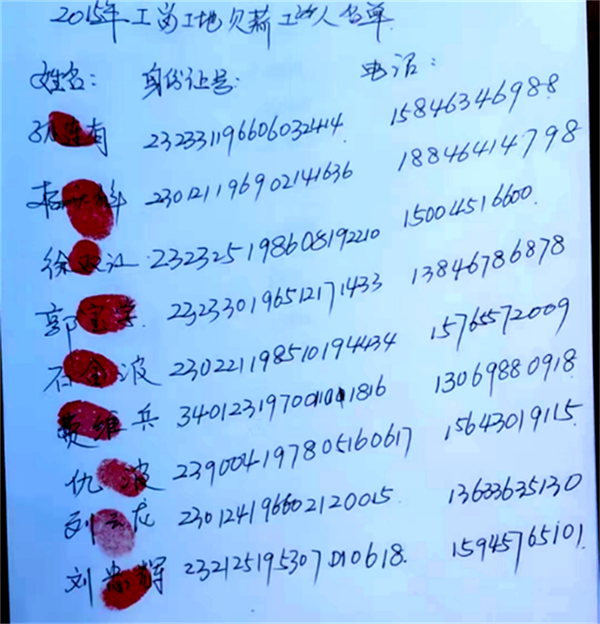 2015年工岗工地贝薪工人名单
姓名: 身份证号: 电话:
有 232331196606032414 15846346988
杨 230121196902141636 18846414798
徐双江 232325198608192210 15004516600
郭宝 232330196512171433 13846786878
石金波 230221198510194434 15765572009
维兵 13069880918
仇波 239004197805160617 15643019115
刘云龙 230124196602120015 13633635130
刘忠辉 15945765101